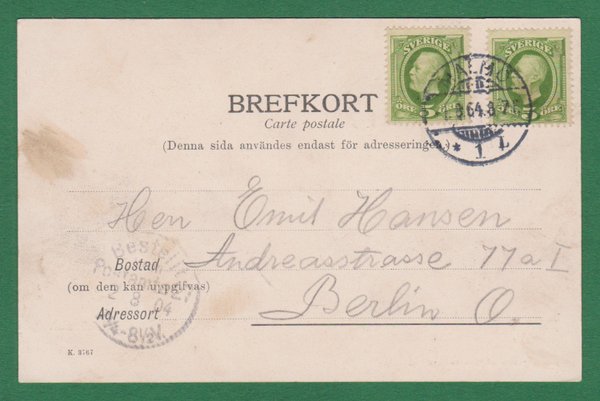 SVERIGE SVERIGE
5 ÖRE ÖRE
MALMÖ
1 L
BREFKORT
Carte postale
(Denna sida användes endast för adresseringen.)
Herr Emil Hansen
Andreasstrasse 77a I
Bostad
(om den kan uppgifvas)
Berlin O.
Adressort
Bestellt
Postamt
8 04
K. 3767